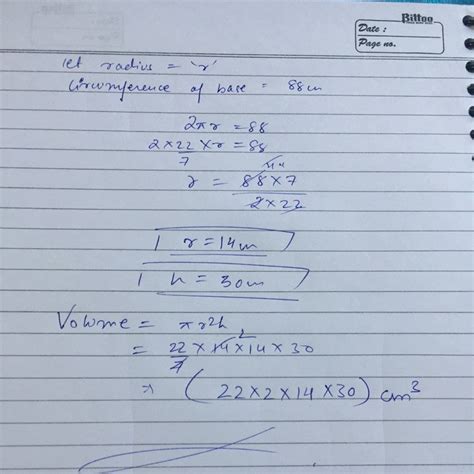 Bittoo
Date :
Page no.
let radius = 'r'
Circumference of base = 88cm
2πr = 88
2 × 22/7 × r = 88
r = 88 × 7 / 2 × 22
r = 14cm
h = 30cm
Volume = πr²h
= 22/7 × 14 × 14 × 30
2
⇒ (22 × 2 × 14 × 30) cm³